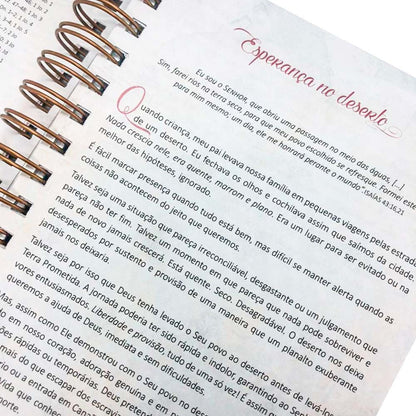 Esperança no deserto
Eu sou o SENHOR, que abriu uma passagem no meio das águas, [...]
Sim, farei rios na terra seca, para que meu povo escolhido se refresque. Formei este
para mim mesmo; um dia, ele me honrará perante o mundo". ISAÍAS 43:16,21
Quando criança, meu pai levava nossa família em pequenas viagens pelas estrad
de um deserto. Eu fechava os olhos e cochilava assim que saíamos da cidade
Nada crescia nele, era quente, marrom e plano. Era um lugar para ser evitado ou na
melhor das hipóteses, ignorado.
É fácil marcar presença quando tudo está bem, mas difícil se manter alerta quando as
coisas não acontecem do jeito que queremos.
Talvez seja uma situação que pareça irreconciliável, desgastante ou um julgamento que
pareça não ter fim. Talvez um momento em que pareça que nada pode sobreviver e
nada de novo jamais crescerá. Está quente. Seco. Desagradável. O deserto nos deixa
desesperados por sustento e provisão de uma maneira que um planalto exuberante
jamais nos deixaria.
Talvez seja por isso que Deus tenha levado o Seu povo ao deserto antes de levá-l
Terra Prometida. A jornada poderia ter sido rápida e indolor, garantindo ao Senho
vores entusiasmados. Liberdade e provisão, tudo de uma só vez! E assim
queremos a ajuda de Deus, imediata e sem dificuldades.
Mas, assim como Ele demonstrou com o Seu povo no deser
do em nosso coração, adoração genuína e em
ções rápidas ou temporárias. Deus preten
mais do que escapar dos escraviz
o ou a entrada em Cana
Vida que conhe